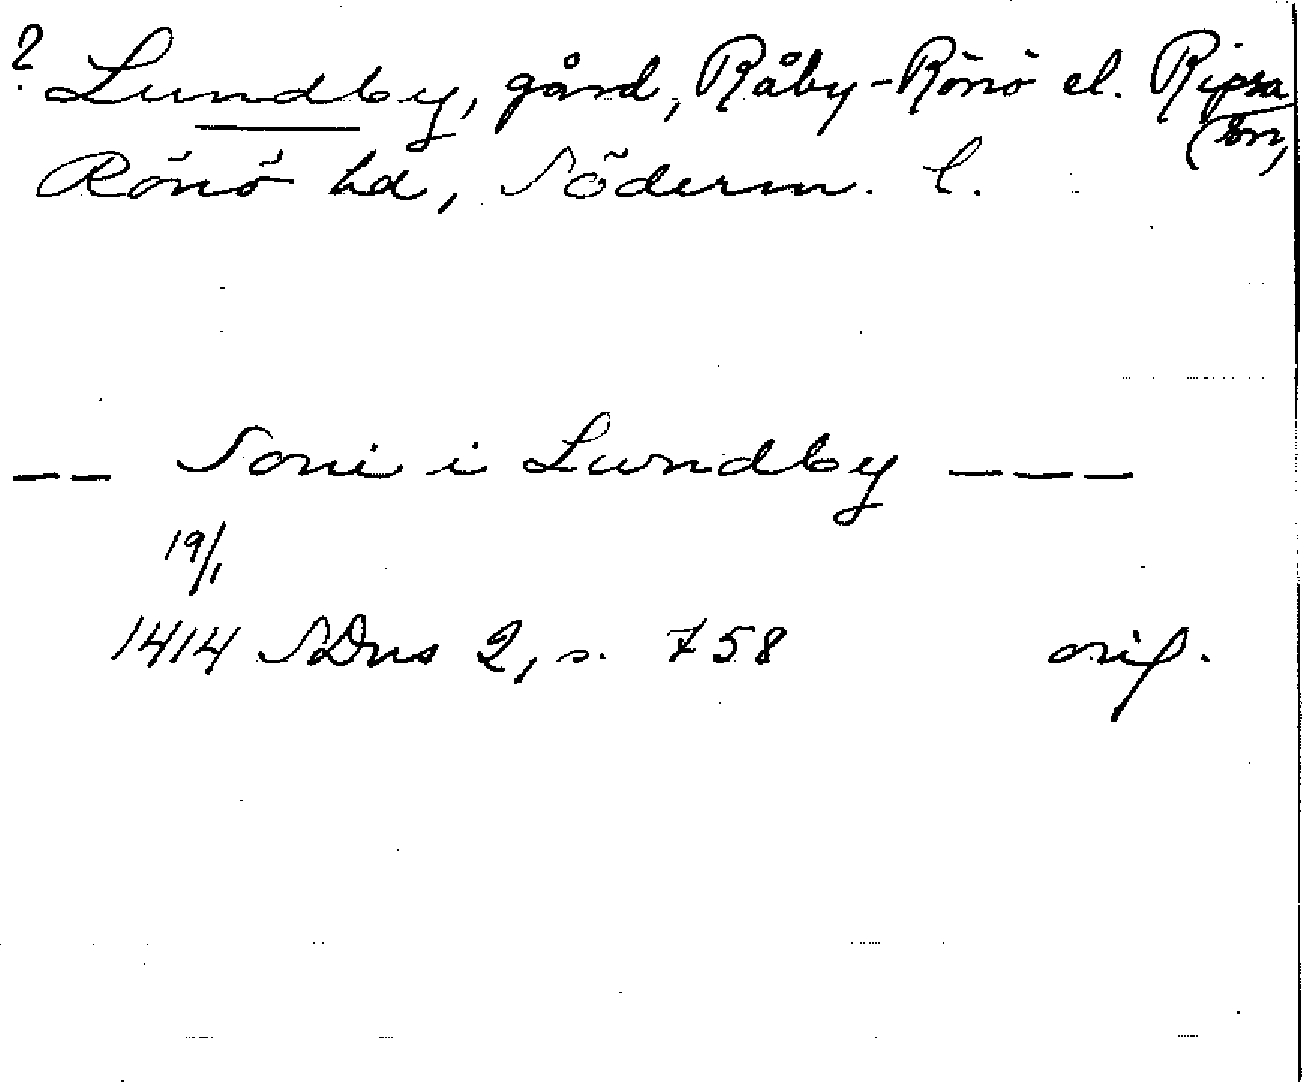 ? Lundby, gård, Råby-Rönö el. Ripsa
(snr,
Rönö hd, Söderm. l.
-- Soni i Lundby ---
19/1
1414 SDns 2, s. 758 orig.